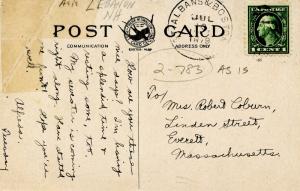 Air LEBANON
N.H.
ST ALBANS & BOS
JUL
R.P.O.
POST CARD
COMMUNICATION
ADDRESS ONLY
1 CENT 1
2-783 AS IS
How are you these
nice days? I'm having
a splendid time &
resting some, too.
My sweater is coming
right along. Have started
one front. Hope you're
well.
Alfreda.
Tuesday
To/
Mrs. Robert Coburn,
Linden Street,
Everett,
Massachusetts.